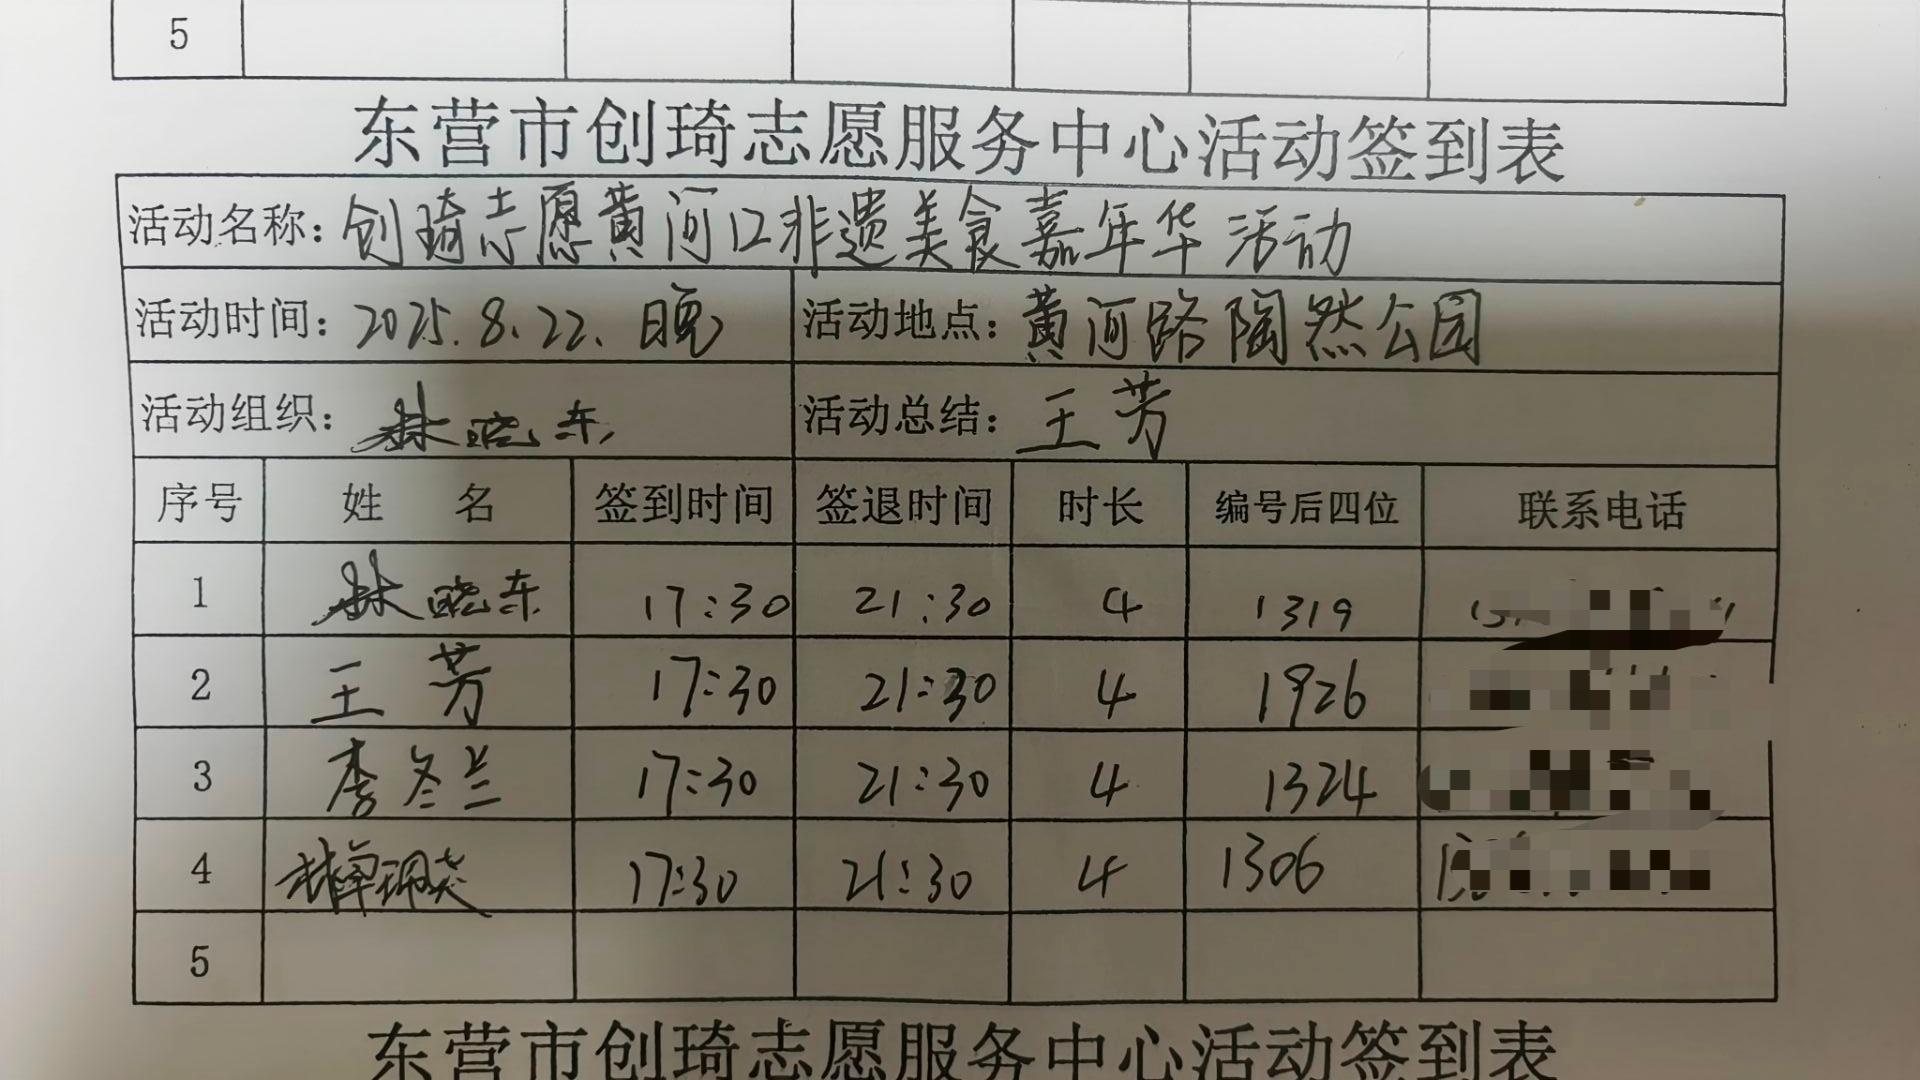 5
东营市创琦志愿服务中心活动签到表
活动名称：创琦志愿黄河口非遗美食嘉年华活动
活动时间：2025.8.22.晚 活动地点：黄河路陶然公园
活动组织：林晓东 活动总结：王芳
序号 姓 名 签到时间 签退时间 时长 编号后四位 联系电话
1 林晓东 17:30 21:30 4 1319
2 王芳 17:30 21:30 4 1926
3 李冬兰 17:30 21:30 4 1324
4 17:30 21:30 4 1306
5
东营市创琦志愿服务中心活动签到表